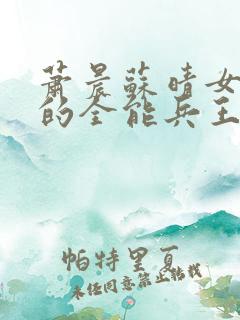 蕭晨蘇晴女
的全能兵王
帕特里夏
未经同意禁止转载